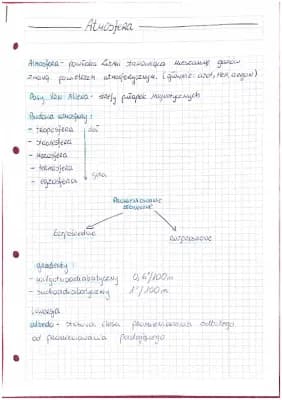 Atmosfera
Atmosfera - powłoka Ziemi stanowiąca mieszaninę gazów
zwaną powietrzem atmosferycznym. (głównie: azot, tlen, argon)
Pasy Van Allena - strefy pułapek magnetycznych
Budowa atmosfery:
- troposfera dół
- stratosfera
- mezosfera
- termosfera
- egzosfera góra
Promieniowanie
słoneczne
bezpośrednie rozproszone
gradienty:
- wilgotnoadiabatyczny 0,6°/100m
- suchoadiabatyczny 1°/100m
inwersja
albedo - stosunek promieniowania odbitego
od promieniowania padającego